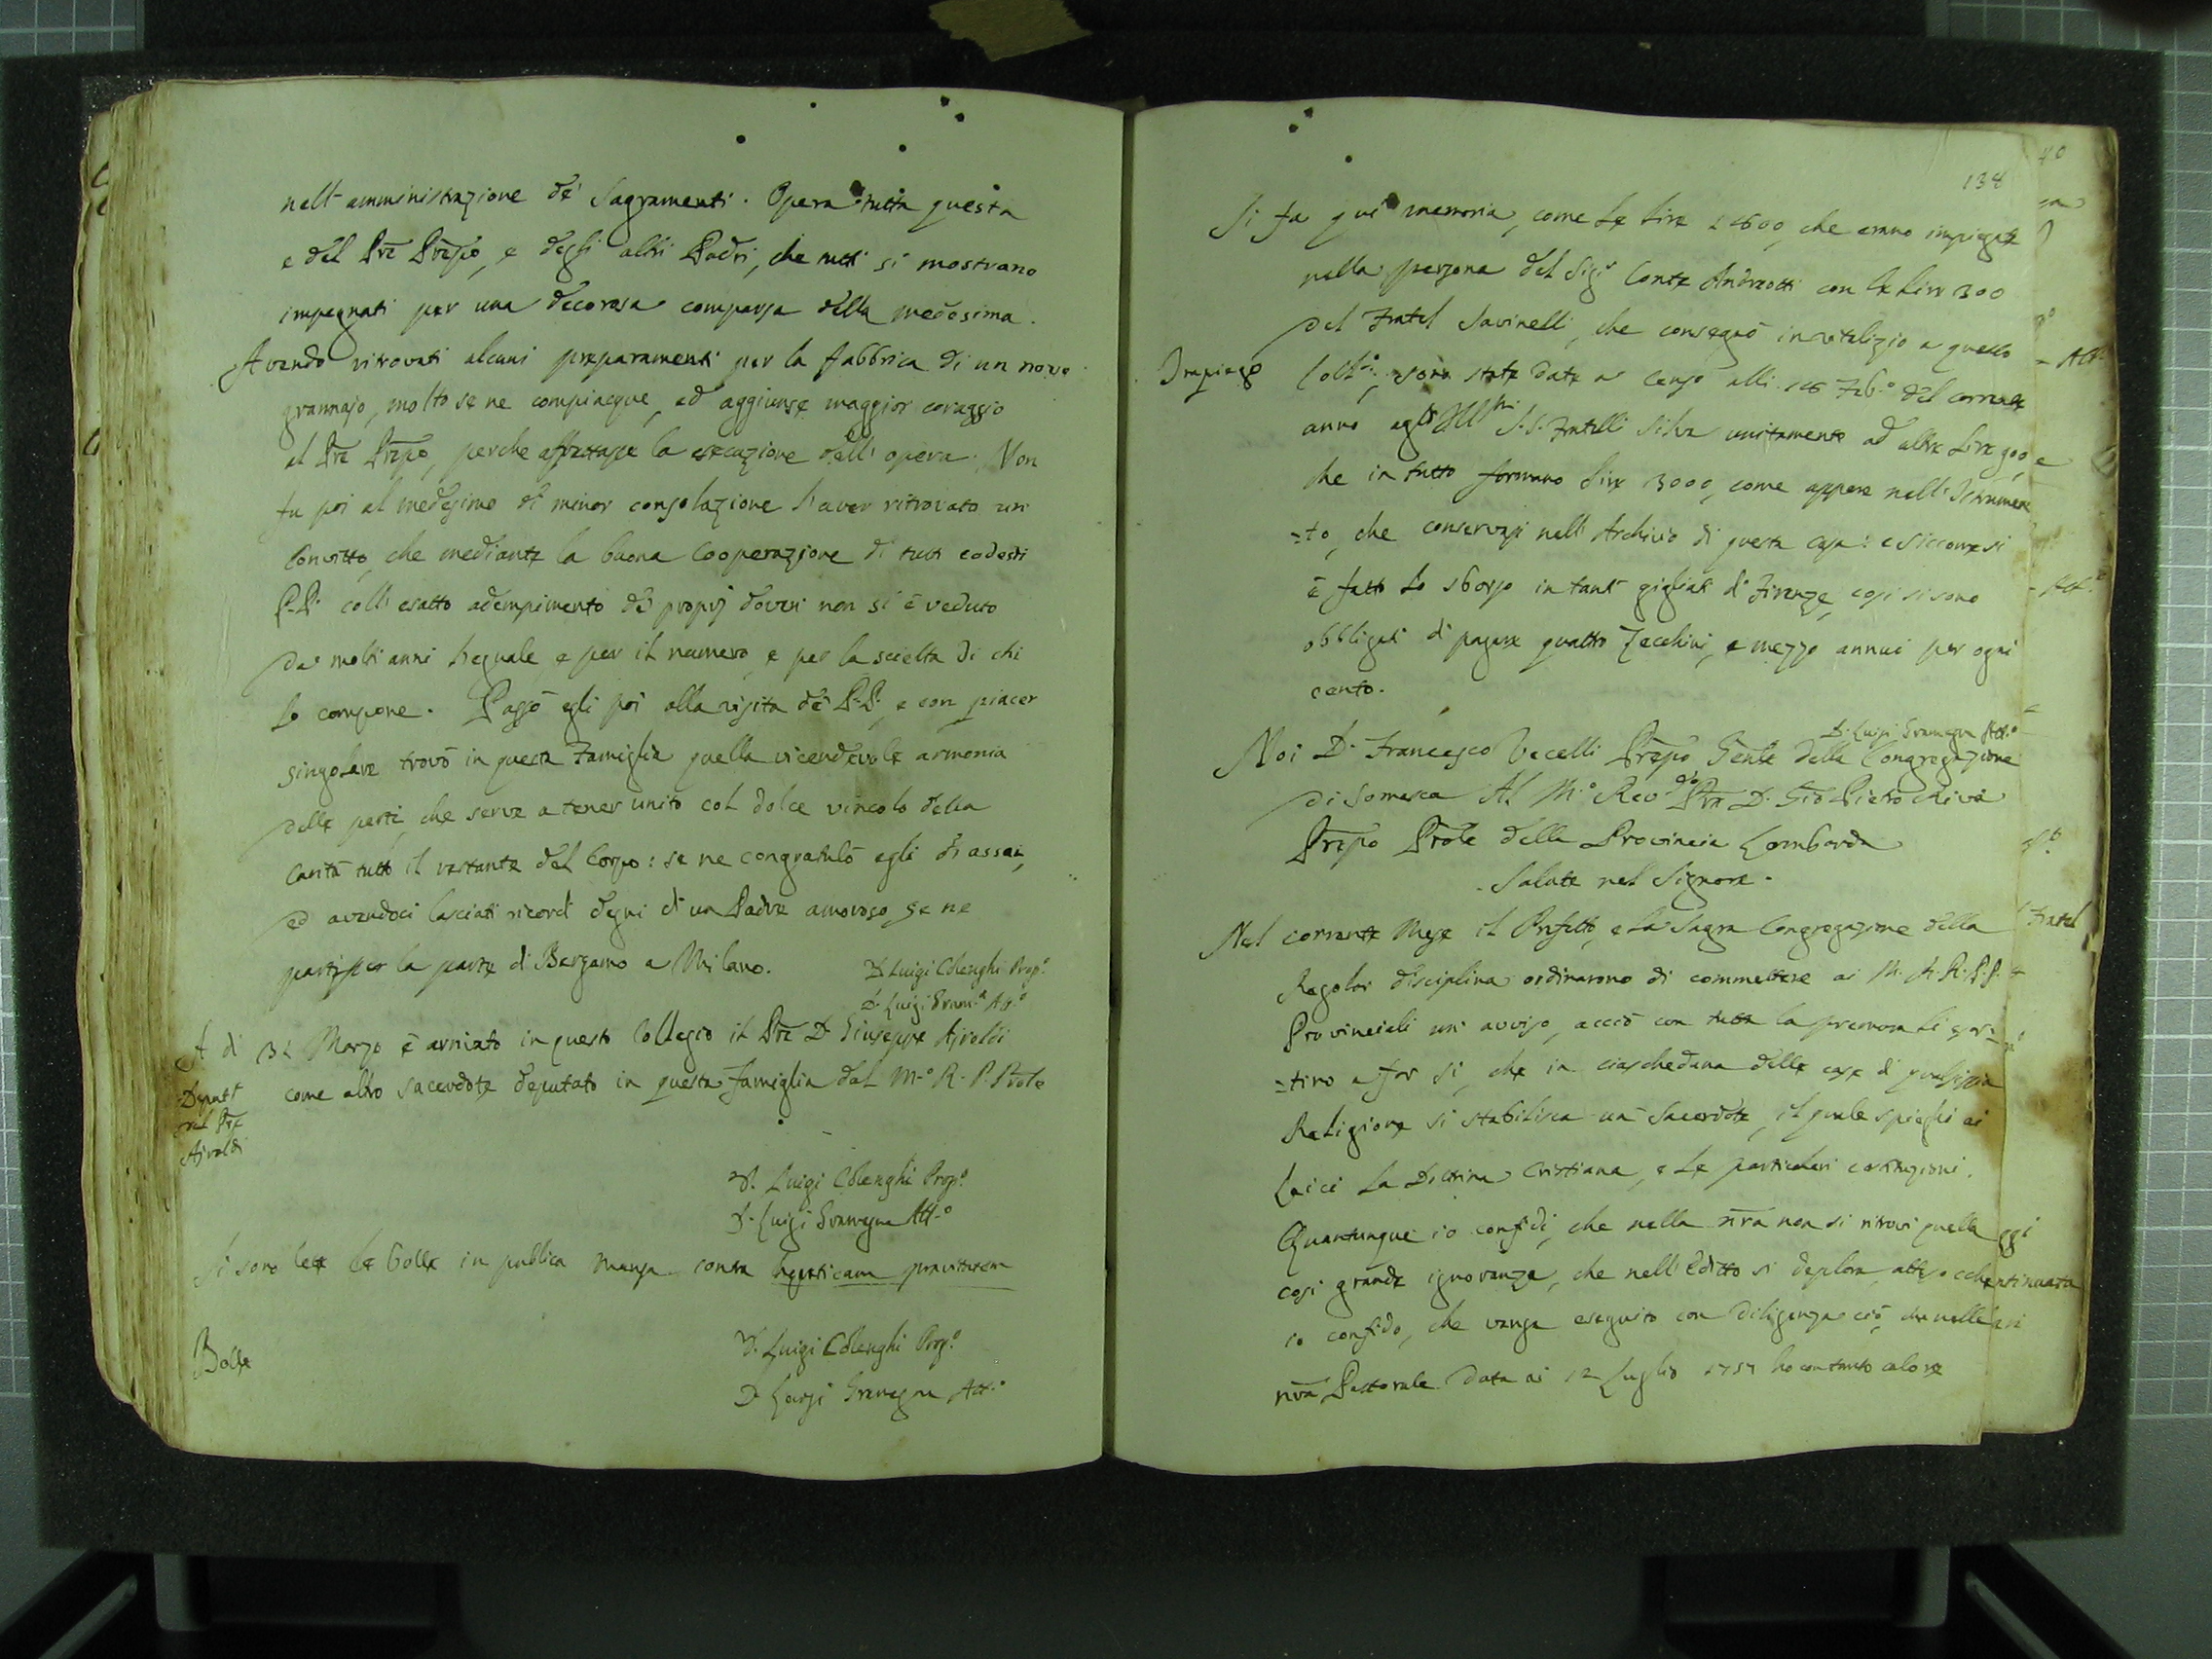 nell'amministrazione de' Sagramenti. Opera tutta questa
e del Pre Prepo, e degli altri Padri, che tutti si mostrano
impegnati per una decorosa comparsa della medesima.
Avendo ritrovati alcuni preparamenti per la fabbrica di un novo
grannajo, molto se ne compiacque, ed aggiunse maggior coraggio
al Pre Prepo, perche affrettasse la esecuzione dell'opera. Non
fu poi al medesimo di minor consolazione l'aver ritrovato un
Convitto, che mediante la buona Cooperazione di tutti codesti
P.P. coll'esatto adempimento de' proprj doveri non si è veduto
da molti anni l'eguale, e per il numero, e per la scielta di chi
lo compone. Passò egli poi alla visita de' P.P., e con piacer
singolare trovò in questa Famiglia quella vicendevole armonia
delle parti, che serve a tener unito col dolce vincolo della
Carità tutto il restante del Corpo: se ne congratulò egli di assai,
ed avendoci lasciati ricordi degni di un Padre amoroso, se ne
partì per la parte di Bergamo a Milano.
D. Luigi Chenghi Prop.o
D. Luigi Gram.a At.o
A di 31 Marzo è arrivato in questo Collegio il Pre D. Giuseppe Ajroldi
come altro sacerdote deputato in questa famiglia dal M.o R. P. Prole
Deput
del Pre
Ajroldi
D. Luigi Chenghi Prop.o
D. Luigi Gramegna Att.o
Si sono lette le Bolle in publica mensa contra hereticam pravitatem
Bolle
D. Luigi Chenghi Prop.o
D. Luigi Gramegna Att.o
134
Si fa qui memoria, come le Lire 1800, che erano impiegate
nella persona del Sig.r Conte Andreotti con le Lire 300
del Fratel Savinelli, che consegnò in vitalizio a questo
Impiego
Coll.o, sono state date a Censo alli 18 Feb.o del corrente
anno agl' Ill.mi S.S. Fratelli Silva unitamente ad altre Lire 900,
che in tutto formano Lire 3000, come appare nell'Istrumen
=to, che conservasi nell'Archivio di questa casa: e siccome si
è fatto lo sborso in tanti gigliati di Firenze, così si sono
obbligati di pagare quattro Zecchini, e mezzo annui per ogni
cento.
D. Luigi Gramegna Att.o
Noi D. Francesco Vecelli Prepo Gente della Congregazione
di Somasca Al M.o Rev.do Pre D. Gio Pietro Riva
Prepo Prole della Provincia Lombarda
Salute nel Signore.
Nel corrente Mese il Prefetto, e la Sagra Congregazione della
Regolar disciplina ordinarono di commettere ai M. R.R. P.P.
Provinciali un avviso, acciò con tutta la premura li esor=
=tino a far si, che in ciascheduna delle case di qualsissia
Religione si stabilisca un Sacerdote, il quale spieghi ai
Laici la Dottrina Cristiana, e le particolari costituzioni.
Quantunque io confidi, che nella nra non si ritrovi quella
così grande ignoranza, che nell'Editto si deplora, atteso che
io confido, che venga eseguito con diligenza ciò, che nella
nra Pastorale data ai 12 Luglio 1757 ho con tanto calore